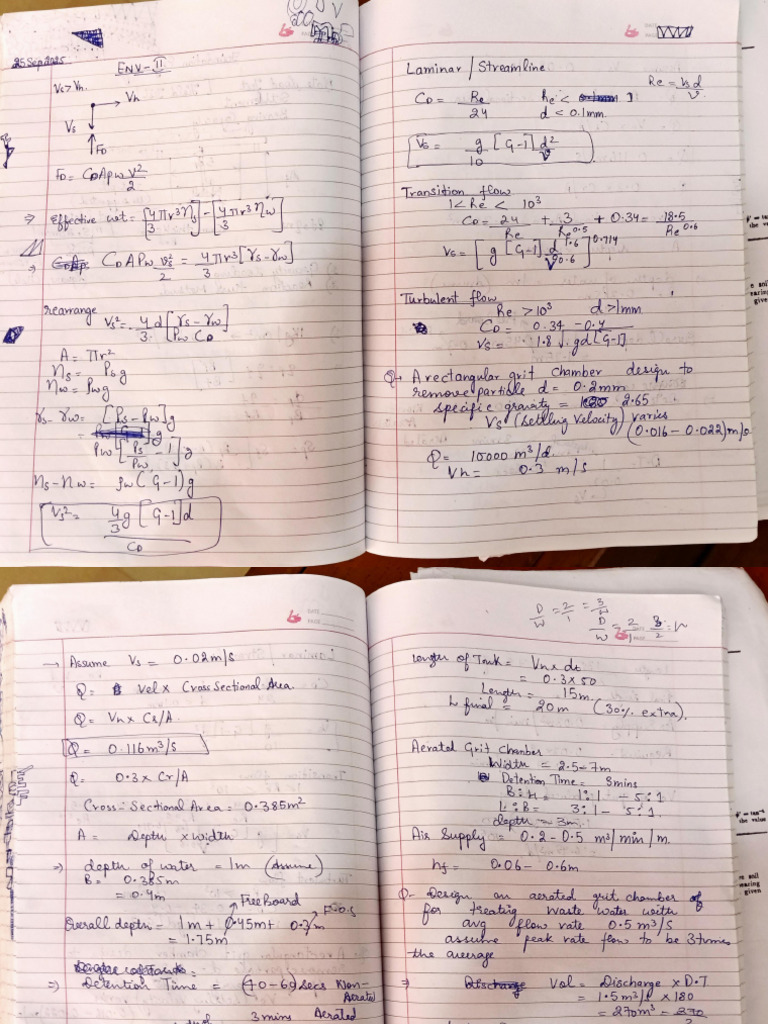 25 Sep 2025
ENV-II
Vs > Vh
Vh
Vs
FD
FD = CD A ρw V²/2
⇒ Effective wt = [4/3 πr³ ηs] - [4/3 πr³ ηw]
⇒ CD A ρw vs²/2 = 4/3 πr³ [γs - γw]
rearrange
Vs² = 4/3 d [γs - γw / ρw CD]
A = πr²
ηs = ρs g
ηw = ρw g
γs - γw = [ρs - ρw] g
= ρw [ρs/ρw - 1] g
ηs - ηw = ρw (G-1) g
Vs² = 4/3 g [G-1] d / CD
Laminar / Streamline
Re = Vs d / ν
CD = Re / 24 Re < 1
d < 0.1mm
Vs = g/10 [G-1] d²/ν
Transition flow
1 < Re < 10³
CD = 24/Re + 3/Re^0.5 + 0.34 = 18.5/Re^0.6
Vs = [g [G-1] d^1.6 / ν^0.6]^0.714
Turbulent flow
Re > 10³ d > 1mm
CD = 0.34 - 0.4
Vs = 1.8 √gd[G-1]
Q→ A rectangular grit chamber design to
remove particle d = 0.2mm
specific gravity = 2.65
Vs (settling velocity) varies
(0.016 - 0.022) m/s
Q = 10000 m³/d
Vh = 0.3 m/s
→ Assume Vs = 0.02 m/s
Q = Vel x Cross Sectional Area.
Q = Vh x Cr/A
Q = 0.116 m³/s
Q = 0.3 x Cr/A
Cross-Sectional Area = 0.385m²
A = Depth x width
⇒ depth of water = 1m (assume)
B = 0.385m
= 0.4m
Free Board
Overall depth = 1m + 0.45m + 0.3m
= 1.75m
⇒ Detention Time = (40-60) secs Non-
Aerated
3 mins Aerated
D/W = 2/1 = 3/W
D/W = 2/1
Length of Tank = Vh x dt
= 0.3 x 50
Length = 15m
L final = 20m (30% extra).
Aerated Grit Chamber
Width = 2.5-7m
Detention Time = 3mins
B:H = 1:1 - 5:1
L:B = 3:1 - 5:1
depth = 3m
Air Supply = 0.2 - 0.5 m³/min/m.
hf = 0.06 - 0.6m
Q- Design an aerated grit chamber
for treating waste water with
avg flow rate 0.5 m³/s
assume peak rate flow to be 3 times
the average
⇒ Vol = Discharge x D.T
= 1.5 m³/s x 180
= 270m³